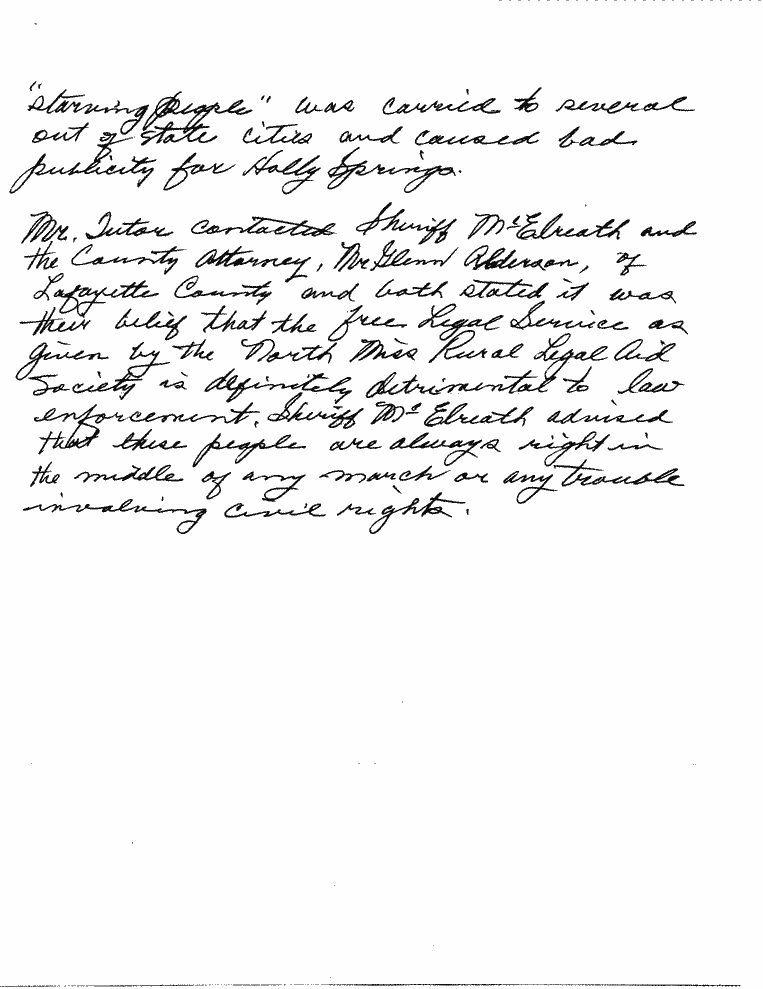 "starving people" was carried to several
out of state cities and caused bad
publicity for Holly Springs.
Mr. Tutor contacted Sheriff McElreath and
the County Attorney, Mr Glenn Alderson, of
Lafayette County and both stated it was
their belief that the free Legal Service as
given by the North Miss Rural Legal Aid
Society is definitely detrimental to law
enforcement. Sheriff Mc Elreath advised
that these people are always right in
the middle of any march or any trouble
involving civil rights.